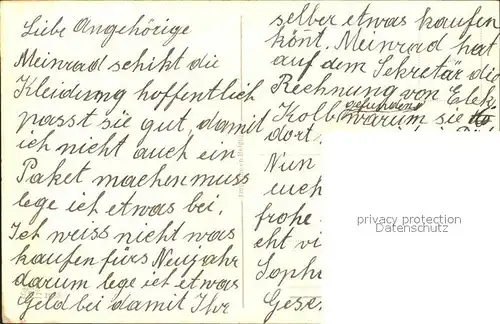 Liebe Angehörige
Meinrad schikt die
Kleidung hoffentlich
passt sie gut, damit
ich nicht auch ein
Paket machen muss
lege ich etwas bei.
Ich weiss nicht was
kaufen fürs Neujahr
darum lege ich etwas
Geld bei damit Ihr
selber etwas kaufen
könt. Meinrad hat
auf dem Sekretär die
Rechnung von Elek.
Kolb gefunden warum sie
dort.
Nun
euch
frohe
privacy protection
www.ansichtskartenversand.com